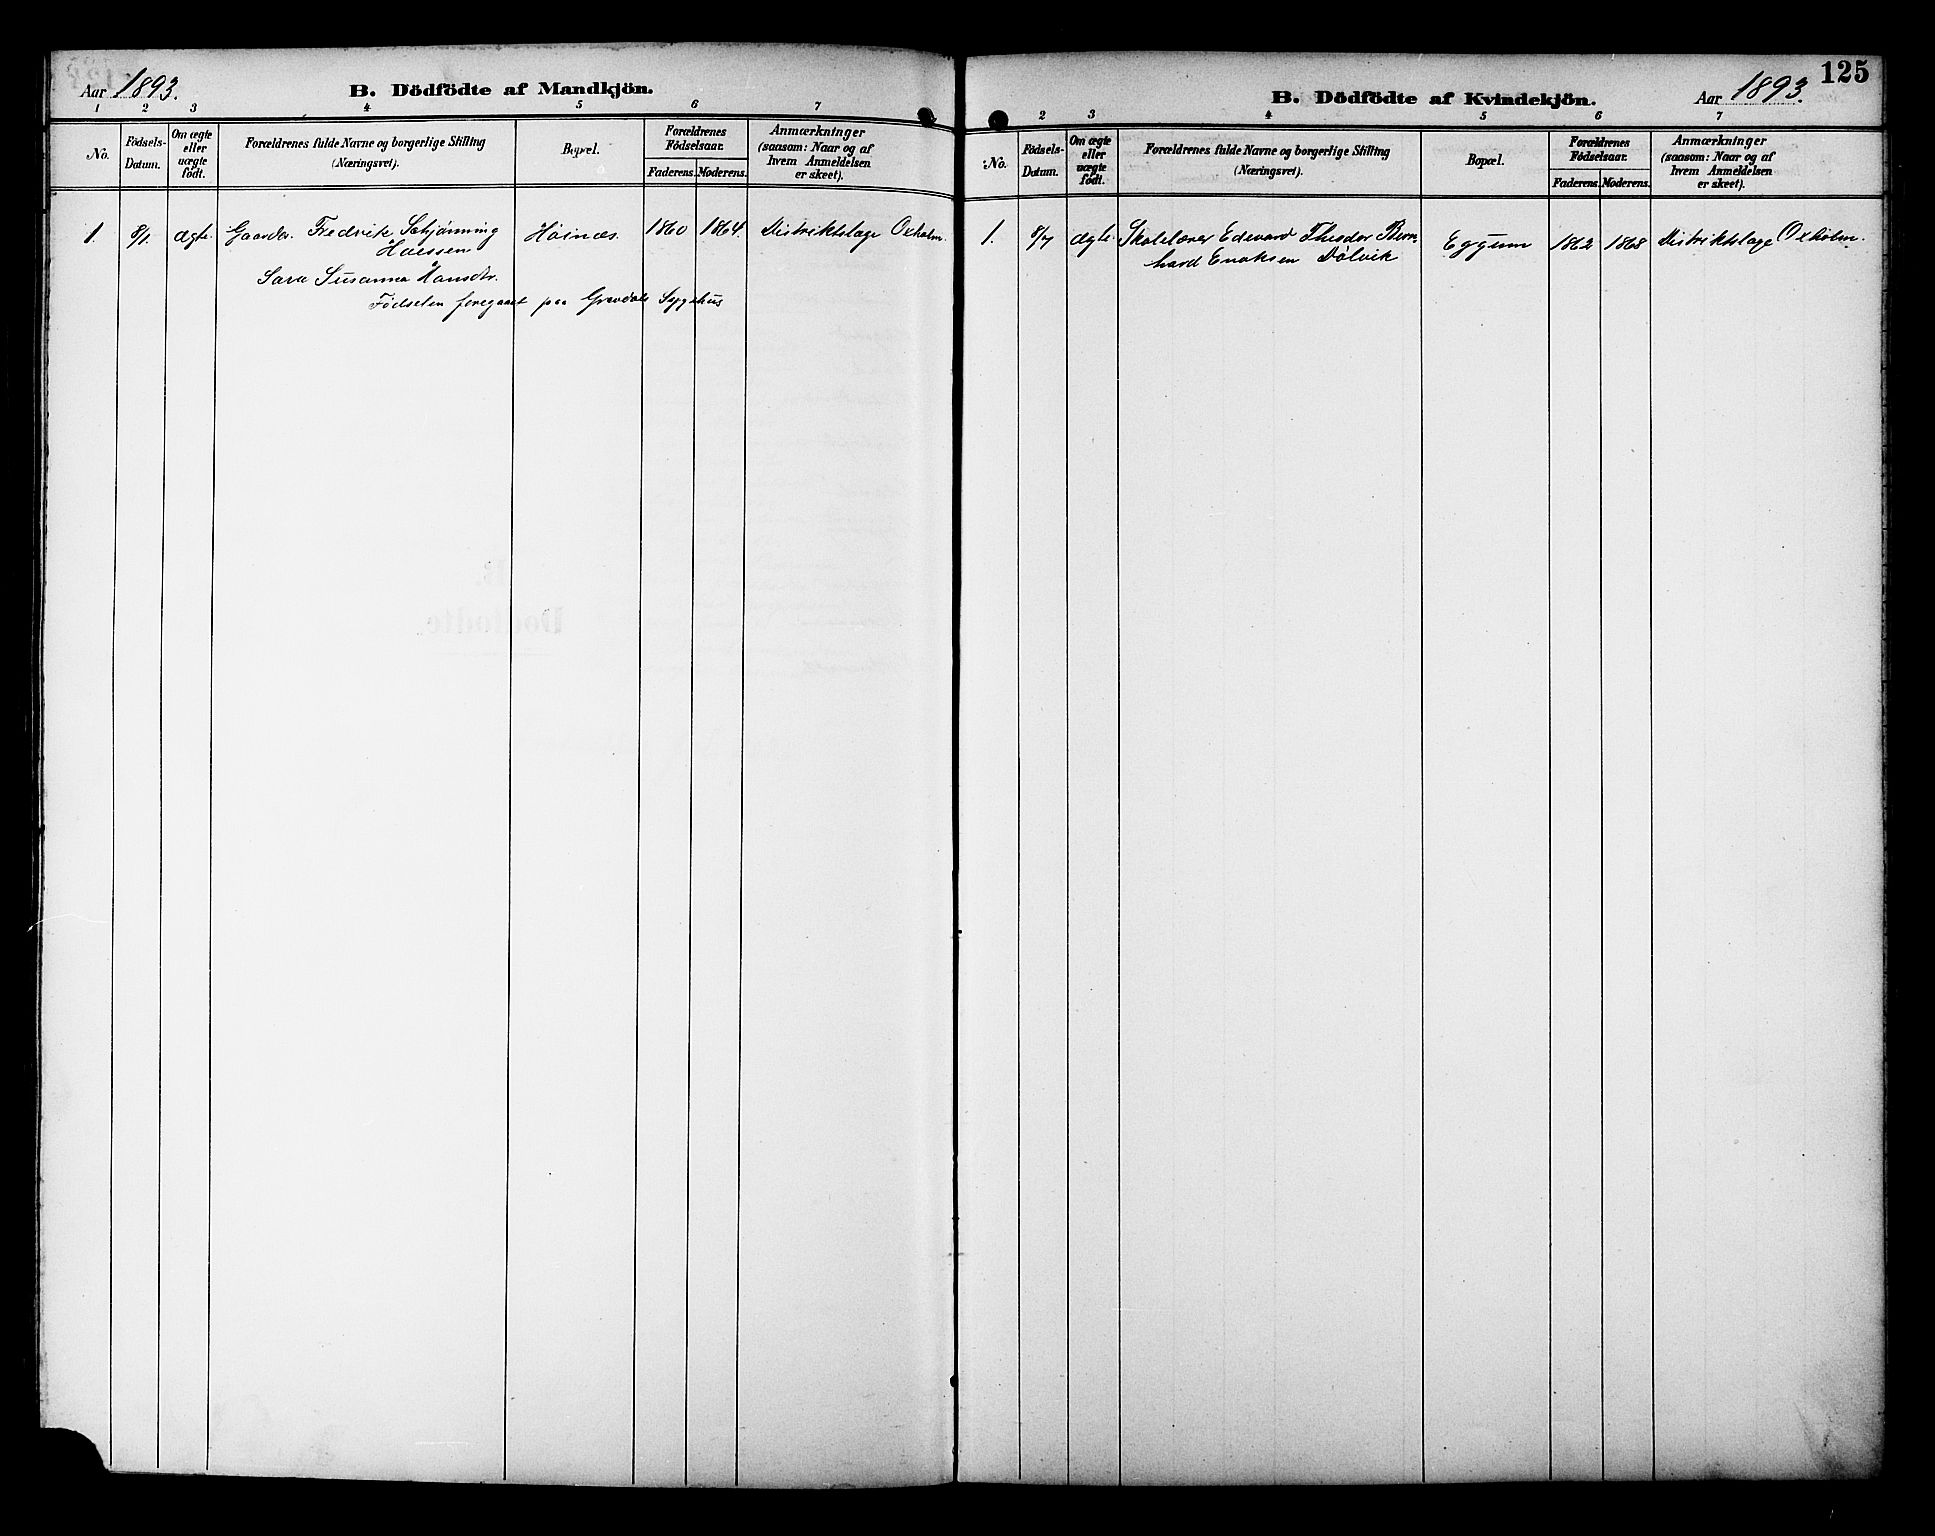 Aar 1893.
B. Dödfödte af Mandkjön.
1 2 3 4 5 6 7
No.
Födsels-Datum.
Om ægte eller uægte født.
Forældrenes fulde Navne og borgerlige Stilling (Næringsvei).
Bopæl.
Forældrenes Födselsaar.
Faderens. Moderens.
Anmærkninger (saasom: Naar og af hvem Anmeldelsen er skeet).
1. 8/1. ægte. Gaardbr. Fredrik Schjönning Høinæs. 1860 1864. Distriktslæge Oxholm.
Sara Susanna Hansdtr.
Födselen foregaaet paa Gravdals Sygehus
125
B. Dödfödte af Kvindekjön.
Aar 1893.
2 3 4 5 6 7
No.
Födsels-Datum.
Om ægte eller uægte födt.
Forældrenes fulde Navne og borgerlige Stilling (Næringsvei).
Bopæl.
Forældrenes Födselsaar.
Faderens. Moderens.
Anmærkninger (saasom: Naar og af hvem Anmeldelsen er skeet).
1. 8/7 ægte. Skolelærer Edevard Theodor Bern- Eggum 1862 1868 Distriktslæge Oxholm.
hard Enoksen Dølvik